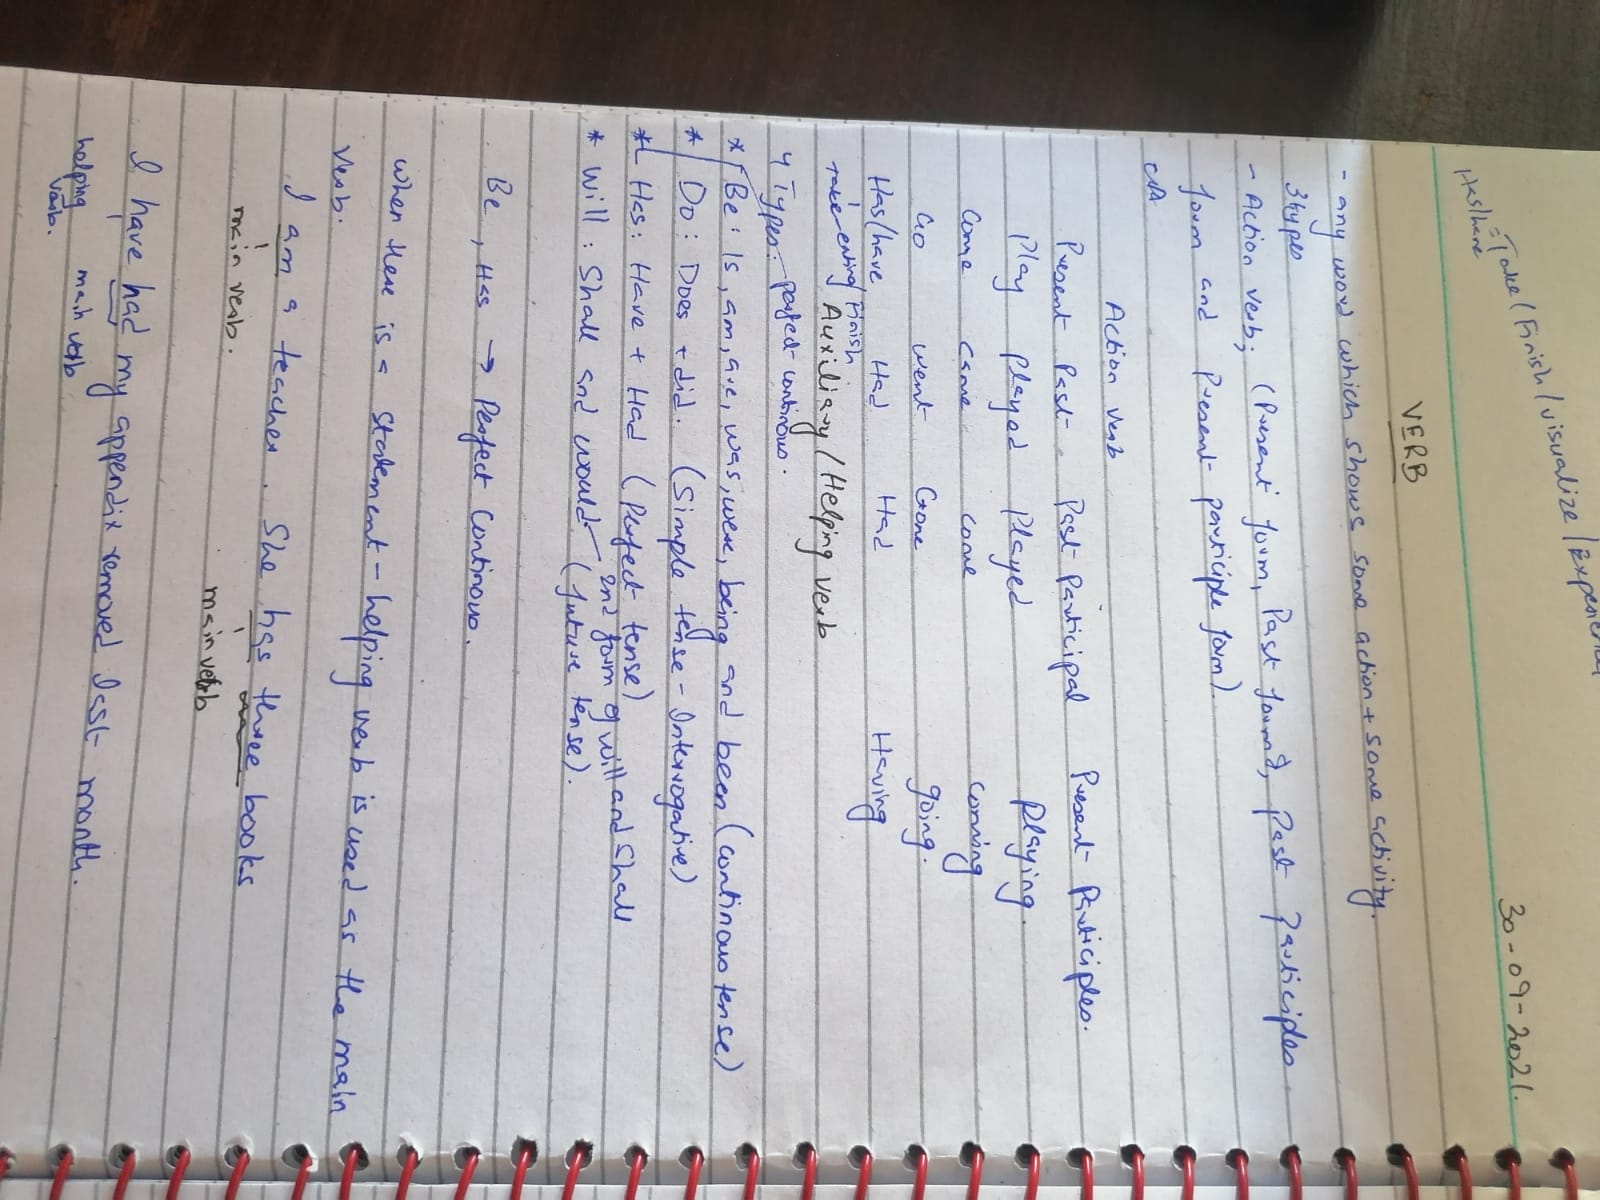 Has/have = Take / Finish / visualize /
30-09-2021.
VERB
- any word which shows some action + some activity.
3 types
- Action verb; (Present form, Past form, Past Participles
form and Present participle form).
Action verb
Present Past Past Participal Present Participles.
Play played Played Playing.
Come came come coming
Go went Gone going.
Has/have Had Had Having
Take eating/ Finish
Auxiliary / Helping verb
4 Types. perfect continous.
* Be: Is, am, are, was, were, being and been (continous tense)
* Do: Does + did. (Simple tense - Interrogative)
* Has: Have + Had (Perfect tense)
* Will: Shall and would - 2nd form of will and shall
(future tense).
Be, Has → Perfect Continous.
When there is a statement - helping verb is used as the main
verb.
I am a teacher. She has three books
main verb. main verb
I have had my appendix removed last month.
helping main verb
verb.